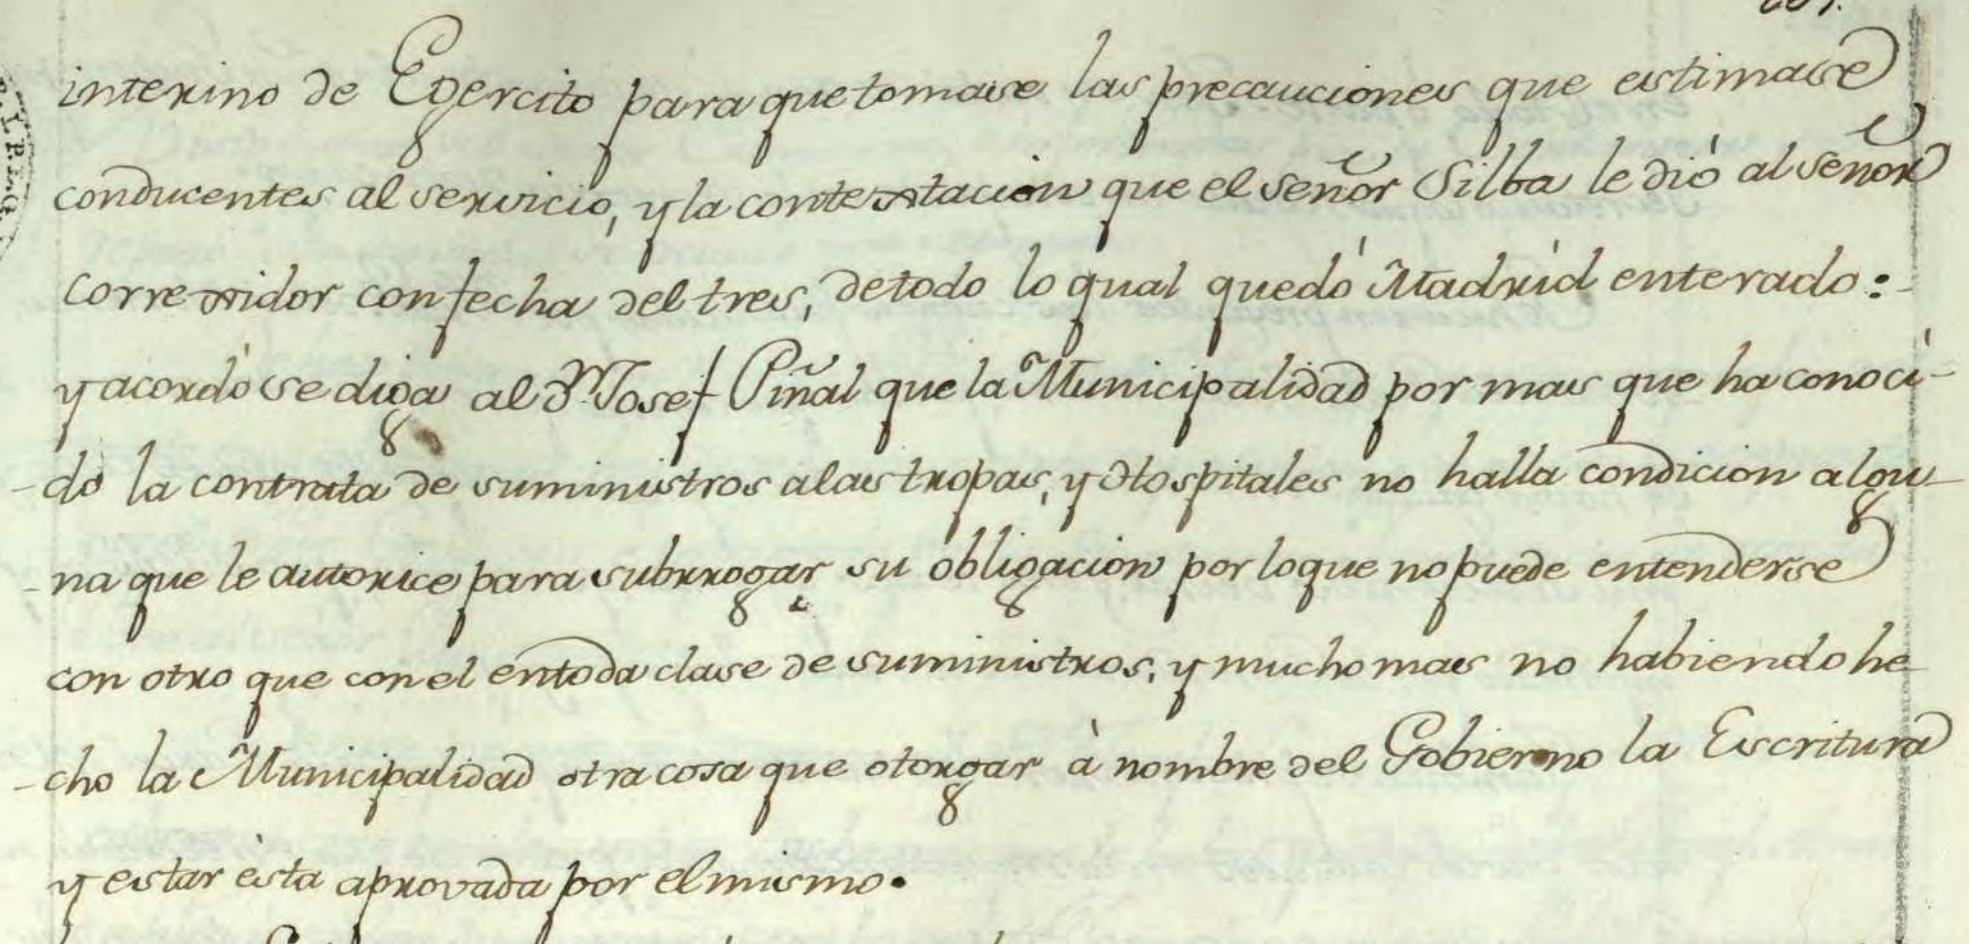 interino de Egercito para que tomase las precauciones que estimase
conducentes al servicio, y la contestacion que el señor Silba le dió al señor
corregidor con fecha del tres, de todo lo qual quedó Madrid enterado:
y acordó se diga al Dn. Josef Piñal que la Municipalidad por mas que ha conoci-
-do la contrata de suministros a las tropas, y Hospitales no halla condicion algu-
-na que le autorice para subrrogar su obligacion por lo que no puede entenderse
con otro que con el en toda clase de suministros, y mucho mas no habiendo he
-cho la Municipalidad otra cosa que otorgar à nombre del Gobierno la Escritura
y estar èsta aprovada por el mismo.